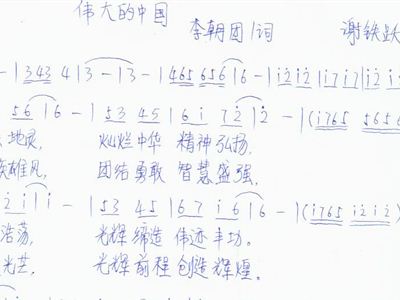 伟大的中国
李朝团 词 谢铁跃
- | 343 43 | 3 - | 3 - | 465 656 | 6 - | i2 i2 | i7 i7 | i2 i2
56 | 6 - | 53 45 | 6 i 72 | 2 - | (i765 5656
地灵, 灿烂中华 精神弘扬.
英雄风, 团结勇敢 智慧盛强.
2 i | i - | 53 45 | 67 i6 | 6 - | (i765 i2 i2)
浩荡, 光辉缔造 伟迹丰功.
光芒, 光辉前程 创造辉煌.